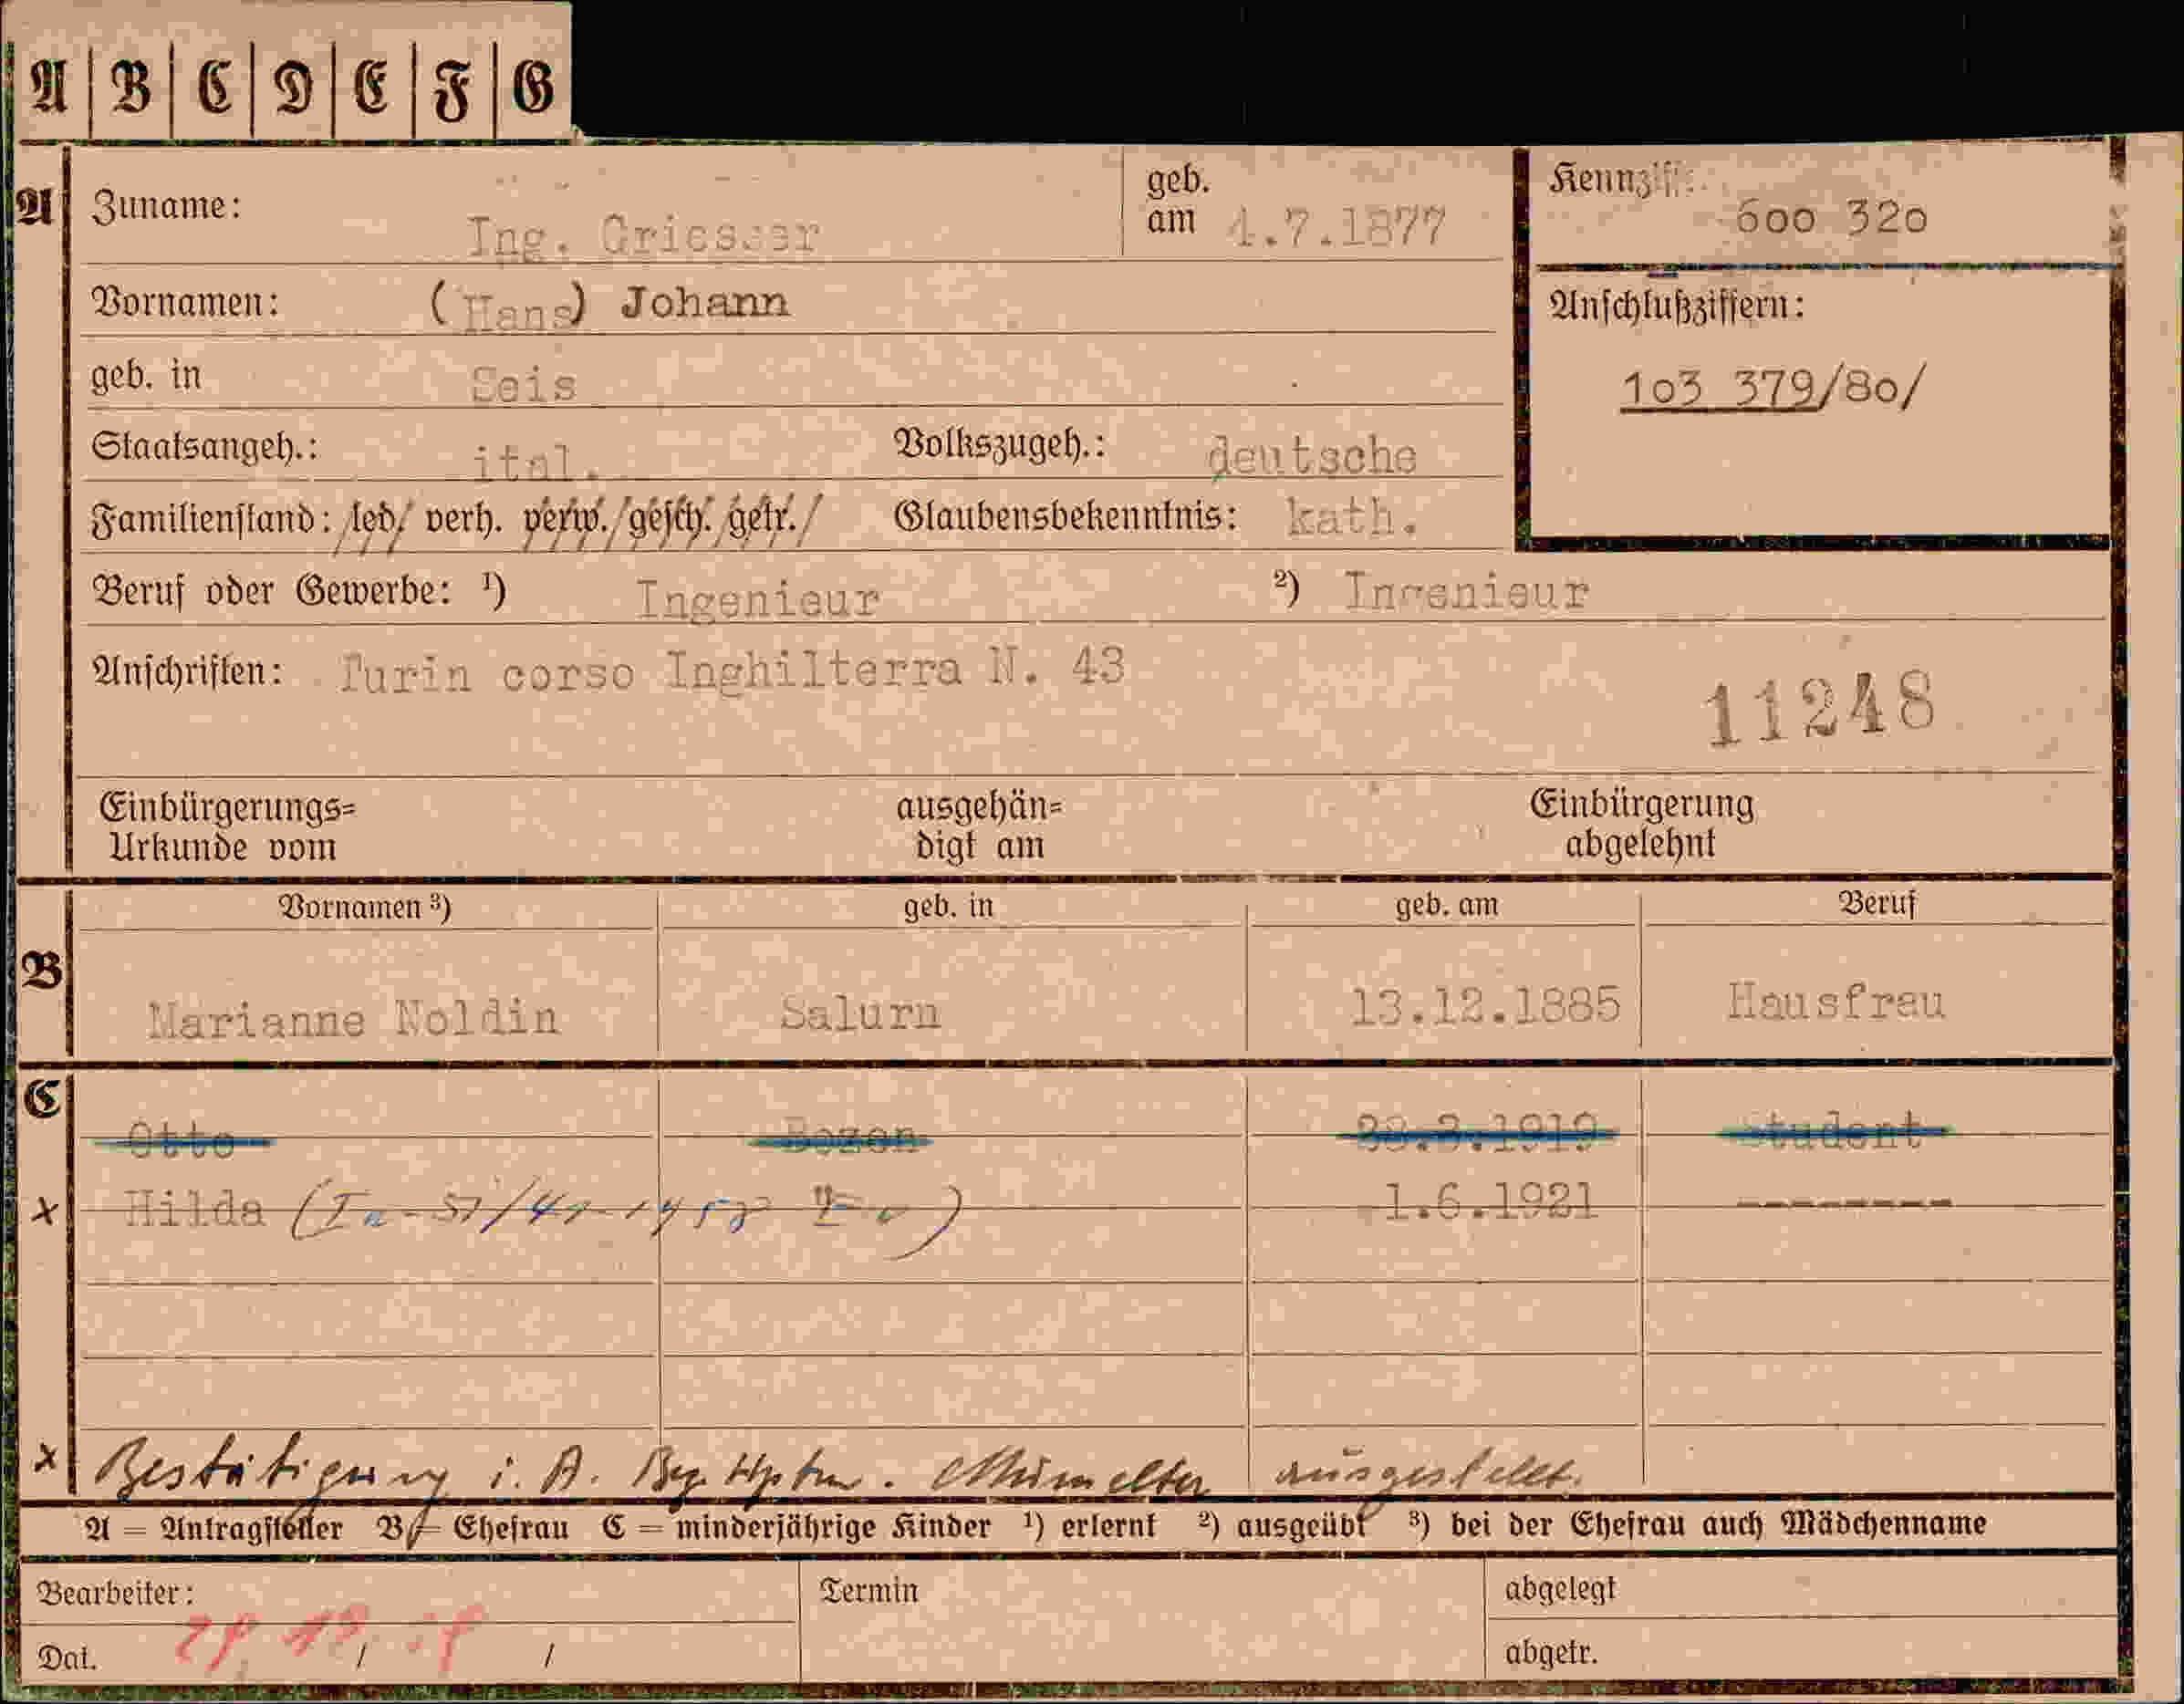 A B C D E F G
A Zuname: Ing. Griesser geb. am 1.7.1877 Kennziff. 600 320
Vornamen: (Hans) Johann Anschlußziffern:
geb. in Seis 103 379/80/
Staatsangeh.: ital. Volkszugeh.: deutsche
Familienstand: led. verh. verw. gesch. getr. Glaubensbekenntnis: kath.
Beruf oder Gewerbe: ¹) Ingenieur ²) Ingenieur
Anschriften: Turin corso Inghilterra N. 43
11248
Einbürgerungs= ausgehän= Einbürgerung
Urkunde vom digt am abgelehnt
Vornamen ³) geb. in geb. am Beruf
B Marianne Noldin Salurn 13.12.1885 Hausfrau
C
Otto Bozen .3.1919 student
x Hilda 1.6.1921 ------
x Bestätigung i. A. ausgestellt.
A = Antragsteller B = Ehefrau C = minderjährige Kinder ¹) erlernt ²) ausgeübt ³) bei der Ehefrau auch Mädchenname
Bearbeiter: Termin abgelegt
Dat. / / abgetr.